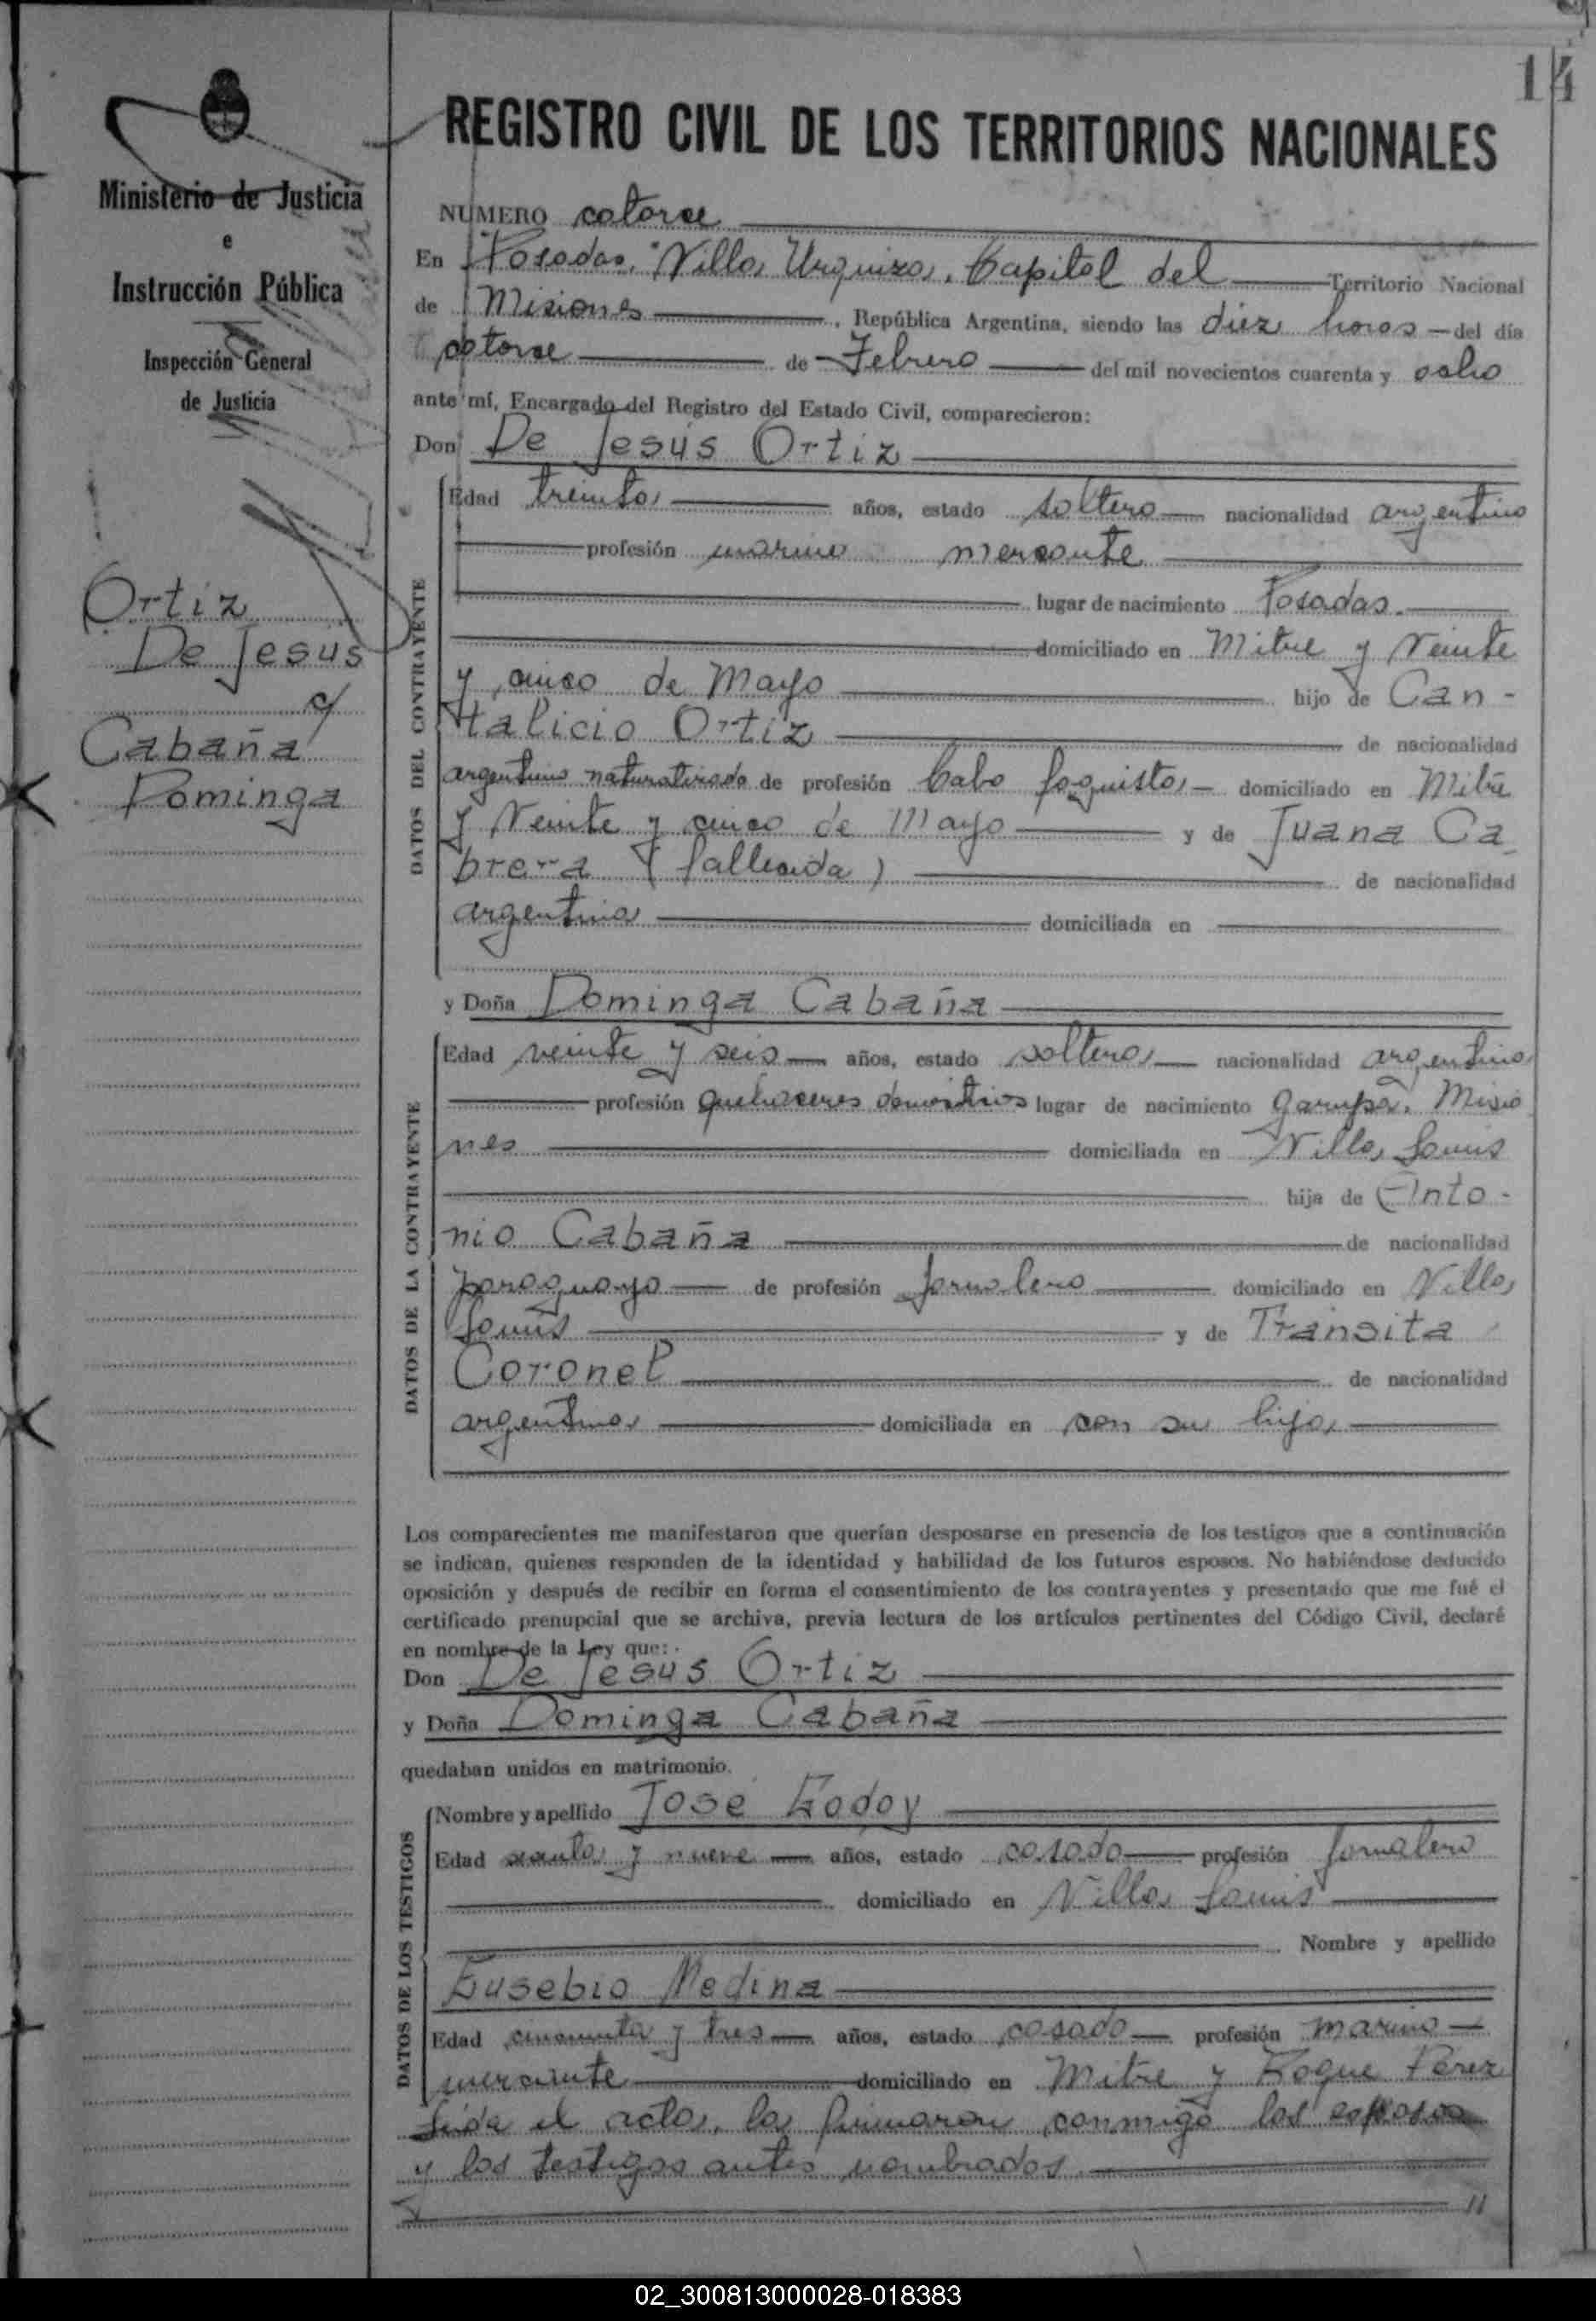 14
REGISTRO CIVIL DE LOS TERRITORIOS NACIONALES
Ministerio de Justicia
e
Instrucción Pública
Inspección General
de Justicia
Ortiz
De Jesús
y
Cabaña
Dominga
NUMERO catorce
En Posadas, "Villa Urquiza, Capital del Territorio Nacional
de Misiones, República Argentina, siendo las diez horas del día
catorce de Febrero del mil novecientos cuarenta y ocho
ante mí, Encargado del Registro del Estado Civil, comparecieron:
Don De Jesús Ortiz
DATOS DEL CONTRAYENTE
Edad treinta años, estado soltero nacionalidad argentino
profesión marino mercante
lugar de nacimiento Posadas.
domiciliado en Mitre y Veinte
y cinco de Mayo hijo de Can-
talicio Ortiz de nacionalidad
argentino naturalizado de profesión Cabo foguista domiciliado en Mitre
y Veinte y cinco de Mayo y de Juana Ca
brera (fallecida) de nacionalidad
argentina domiciliada en
y Doña Dominga Cabaña
DATOS DE LA CONTRAYENTE
Edad veinte y seis años, estado soltera nacionalidad argentina
profesión quehaceres domésticos lugar de nacimiento Garupá, Misio
nes domiciliada en Villa Lanús
hija de Anto-
nio Cabaña de nacionalidad
paraguayo de profesión Jornalero domiciliado en Villa
Lanús y de Tránsita
Coronel de nacionalidad
argentina domiciliada en con su hija
Los comparecientes me manifestaron que querían desposarse en presencia de los testigos que a continuación
se indican, quienes responden de la identidad y habilidad de los futuros esposos. No habiéndose deducido
oposición y después de recibir en forma el consentimiento de los contrayentes y presentado que me fué el
certificado prenupcial que se archiva, previa lectura de los artículos pertinentes del Código Civil, declaré
en nombre de la Ley que:
Don De Jesús Ortiz
y Doña Dominga Cabaña
quedaban unidos en matrimonio.
DATOS DE LOS TESTIGOS
Nombre y apellido José Godoy
Edad y nueve años, estado casado profesión Jornalero
domiciliado en Villa Lanús
Nombre y apellido
Eusebio Medina
Edad cincuenta y tres años, estado casado profesión marino
mercante domiciliado en Mitre y Roque Pérez
Leída el acta, la firmaron conmigo los esposos
y los testigos antes nombrados.
02_300813000028-018383